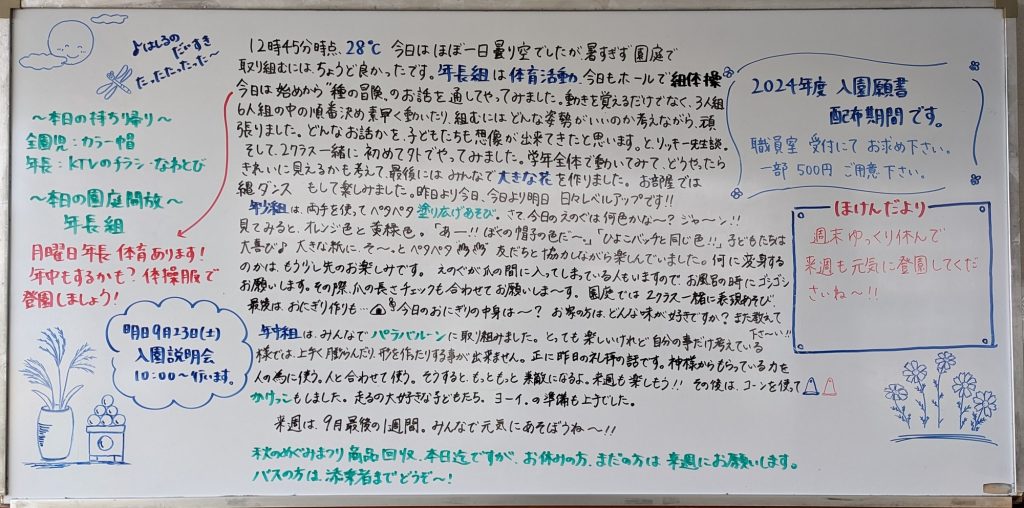 ♪はしるの
だいすき
たったったった〜
〜本日の持ち帰り〜
全園児：カラー帽
年長：KTVのチラシ・なわとび
〜本日の園庭開放〜
年長組
月曜日年長 体育あります！
年中もするかも？体操服で
登園しましょう！
明日9月23日(土)
入園説明会
10:00〜行います。
12時45分時点、28℃ 今日は ほぼ一日 曇り空でしたが、暑すぎず 園庭で
取り組むには、ちょうど良かったです。年長組は体育活動、今日もホールで組体操
今日は 始めから"種の冒険"のお話を通してやってみました。動きを覚えるだけでなく、3人組
6人組の中の順番決め素早く動いたり、組むにはどんな姿勢がいいのか考えながら、頑
張りました。どんなお話かを、子どもたちも想像が出来てきたと思います。と、リッキー先生談。
そして、2クラス一緒に 初めて外でやってみました。学年全体で動いてみて、どうやったら
きれいに見えるかも考えて、最後には みんなで大きな花を作りました。お部屋では
縄ダンス もして楽しみました。昨日より今日、今日より明日 日々レベルアップです!!
年少組は、両手を使って ペタペタ 塗り広げあそび。さて、今日のえのぐは何色かな〜？ジャ〜ン!!
見てみると、オレンジ色と 黄緑色。「あー!! ぼくの帽子の色だ〜。」「ひよこバッチと同じ色!!」子どもたちは
大喜び♪ 大きな紙に、そ〜っと ペタペタ 友だちと協力しながら楽しんでいました。何に変身する
のかは、もう少し先のお楽しみです。 えのぐが爪の間に入ってしまっている人もいますので、お風呂の時にゴシゴシ
お願いします。その際、爪の長さチェックも合わせてお願いしま〜す。 園庭では 2クラス一緒に表現あそび、
最後は、おにぎり作りも… 今日のおにぎりの中身は〜？ お家の方は、どんな味が好きですか？また教えて
下さ〜い!!
年中組は、みんなで パラバルーン に取り組みました。とっても楽しいけれど 自分の事だけ考えている
様では、上手く膨らんだり、形を作ったりする事が出来ません。正に昨日の礼拝の話です。神様からもらっている力を
人の為に使う。人と合わせて使う。そうすると、もっともっと 素敵になるよ。来週も楽しもう!! その後は、コーンを使って
かけっこもしました。走るの大好きな子どもたち。ヨーイ、の準備も上手でした。
来週は、9月最後の1週間。みんなで元気にあそぼうね〜!!
秋のめぐみまつり 商品回収、本日迄ですが、お休みの方、まだの方は 来週にお願いします。
バスの方は 添乗者までどうぞ〜！
2024年度 入園願書
配布期間です。
職員室 受付にて お求め下さい。
一部 500円 ご用意下さい。
ほけんだより
週末ゆっくり休んで
来週も元気に登園してくだ
さいね〜!!